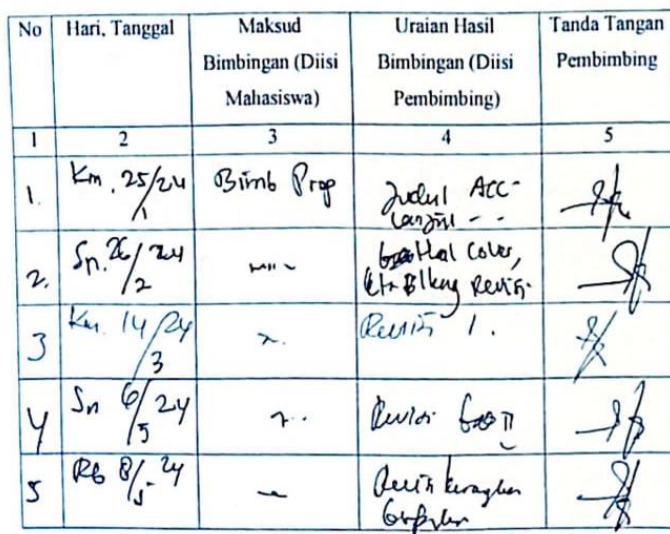 No Hari, Tanggal Maksud Bimbingan (Diisi Mahasiswa) Uraian Hasil Bimbingan (Diisi Pembimbing) Tanda Tangan Pembimbing
1 2 3 4 5
1. Km. 25/1/24 Bimb Prop Judul ACC- lanjut - -
2. Sn. 26/2/24 Hal Cover, Revisi
3 Km. 14/3/24 Revisi 1.
4 Sn 6/5/24 Revisi II
5 Rb 8/5-24 Revisi